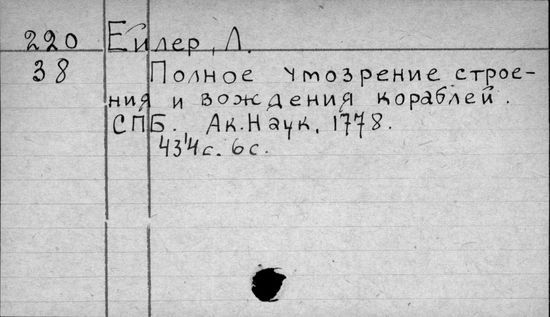 220 Ейлер, Л.
38 Полное умозрение строе-
ния и вождения кораблей.
СПБ. Ак. Наук, 1778.
434с. 6с.